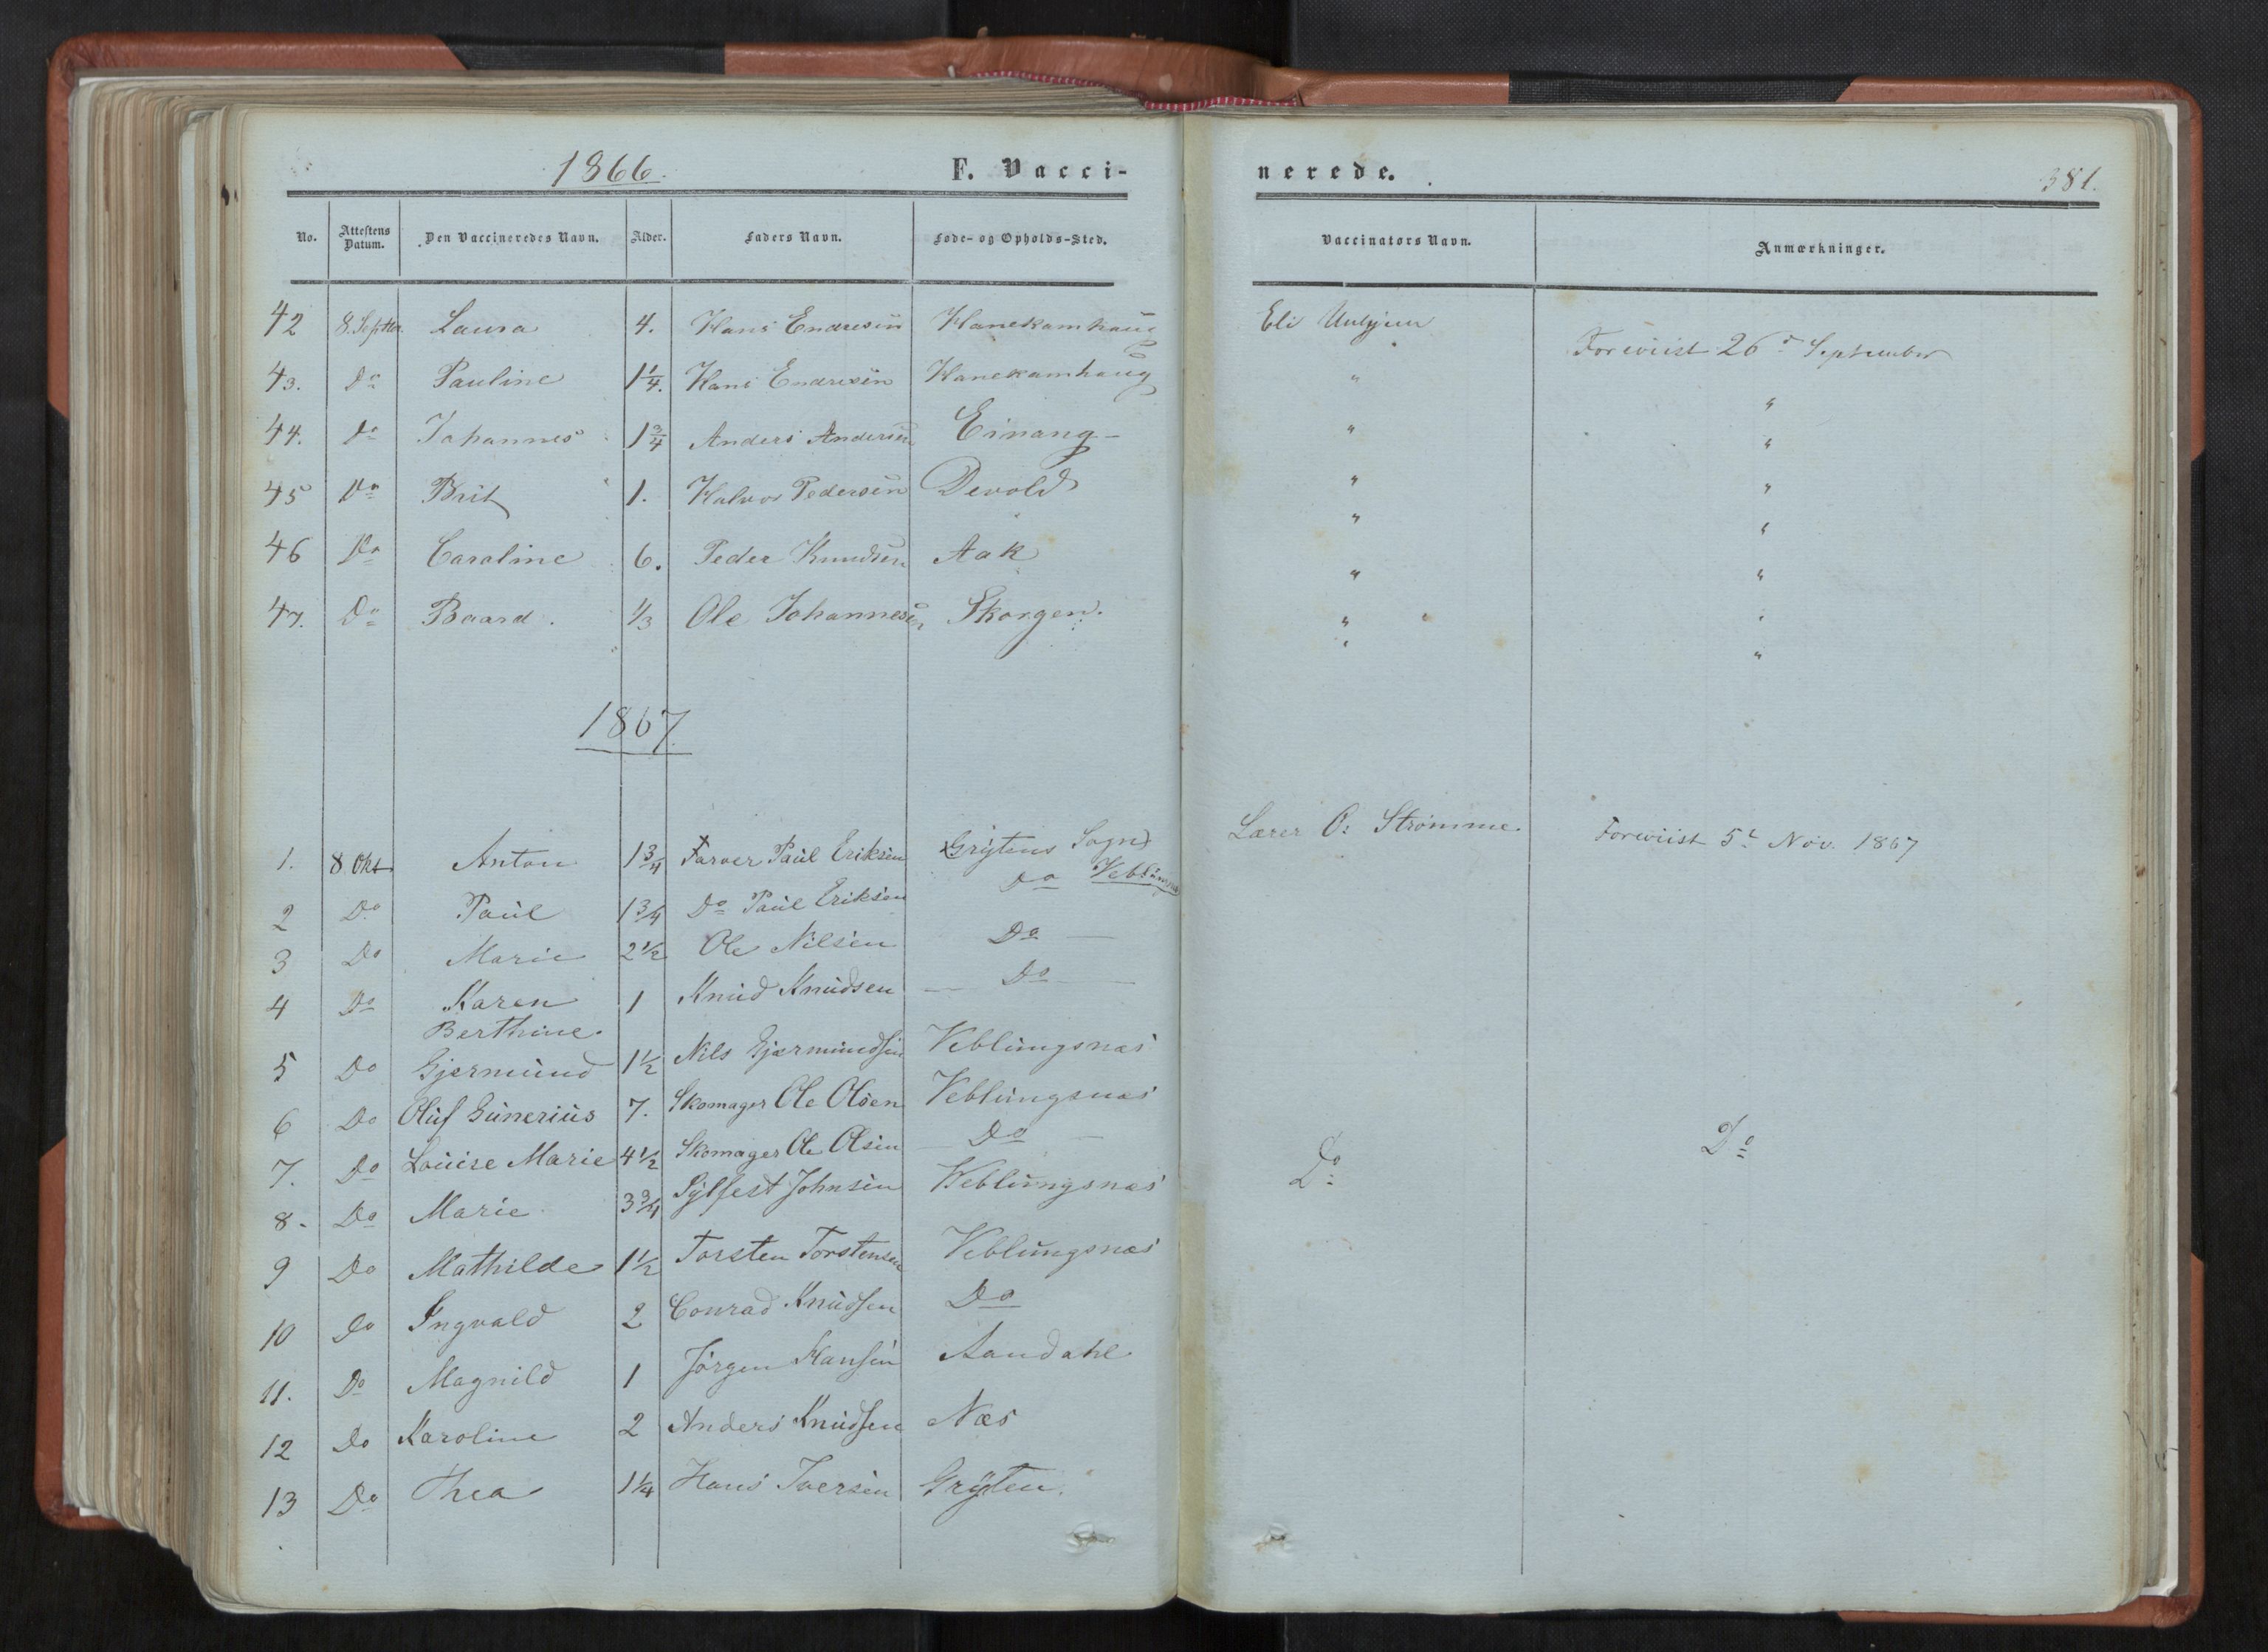 1866. F. Vacci-
nerede. 381.
No. Attestens Datum. Den Vaccineredes Navn. Alder. Faders Navn. Føde- og Opholds-Sted. Vaccinators Navn. Anmærkninger.
42 8. Septbr Laura 4. Hans Endresen Hanekamhaug Eli Foreviist 26d September
43. Do Pauline 1 1/4. Hans Endresen Hanekamhaug " "
44. Do Johannes 1 3/4 Anders Andersen Einang - " "
45 Do Brit 1. Halvor Pedersen Devold " "
46 Do Caroline 6. Peder Knudsen Aak " "
47. Do Baard. 1/3 Ole Johannesen Skorgen. " "
1867.
1. 8 Okt Anton 1 3/4 Farver Paul Eriksen Grytens Sogn Lærer O: Strømme. Foreviist 5t Nov. 1867
2 Do Paul 1 3/4 Do Paul Eriksen Do Veblungsnæs
3 Do Marie 2 1/2 Ole Nilsen Do —
4 Do Karen 1 Knud Knudsen — Do —
Berthine.
5 Do Gjermund 1 1/2 Nils Gjermundsen Veblungsnæs
6 Do Oluf Gunerius 7. Skomager Ole Olsen Veblungsnæs
7. Do Louise Marie 4 1/2 Skomager Ole Olsen — Do — Do Do
8. Do Marie 3 3/4 Sylfest Johnsen Veblungsnæs
9 Do Mathilde 1 1/2 Torsten Torstensen Veblungsnæs
10 Do Ingvald 2 Conrad Knudsen Do
11. Do Magnild 1 Jørgen Hansen Aandahl
12 Do Karoline 2 Anders Knudsen Næs
13 Do Thea 1 1/4 Hans Iversen Gryten.